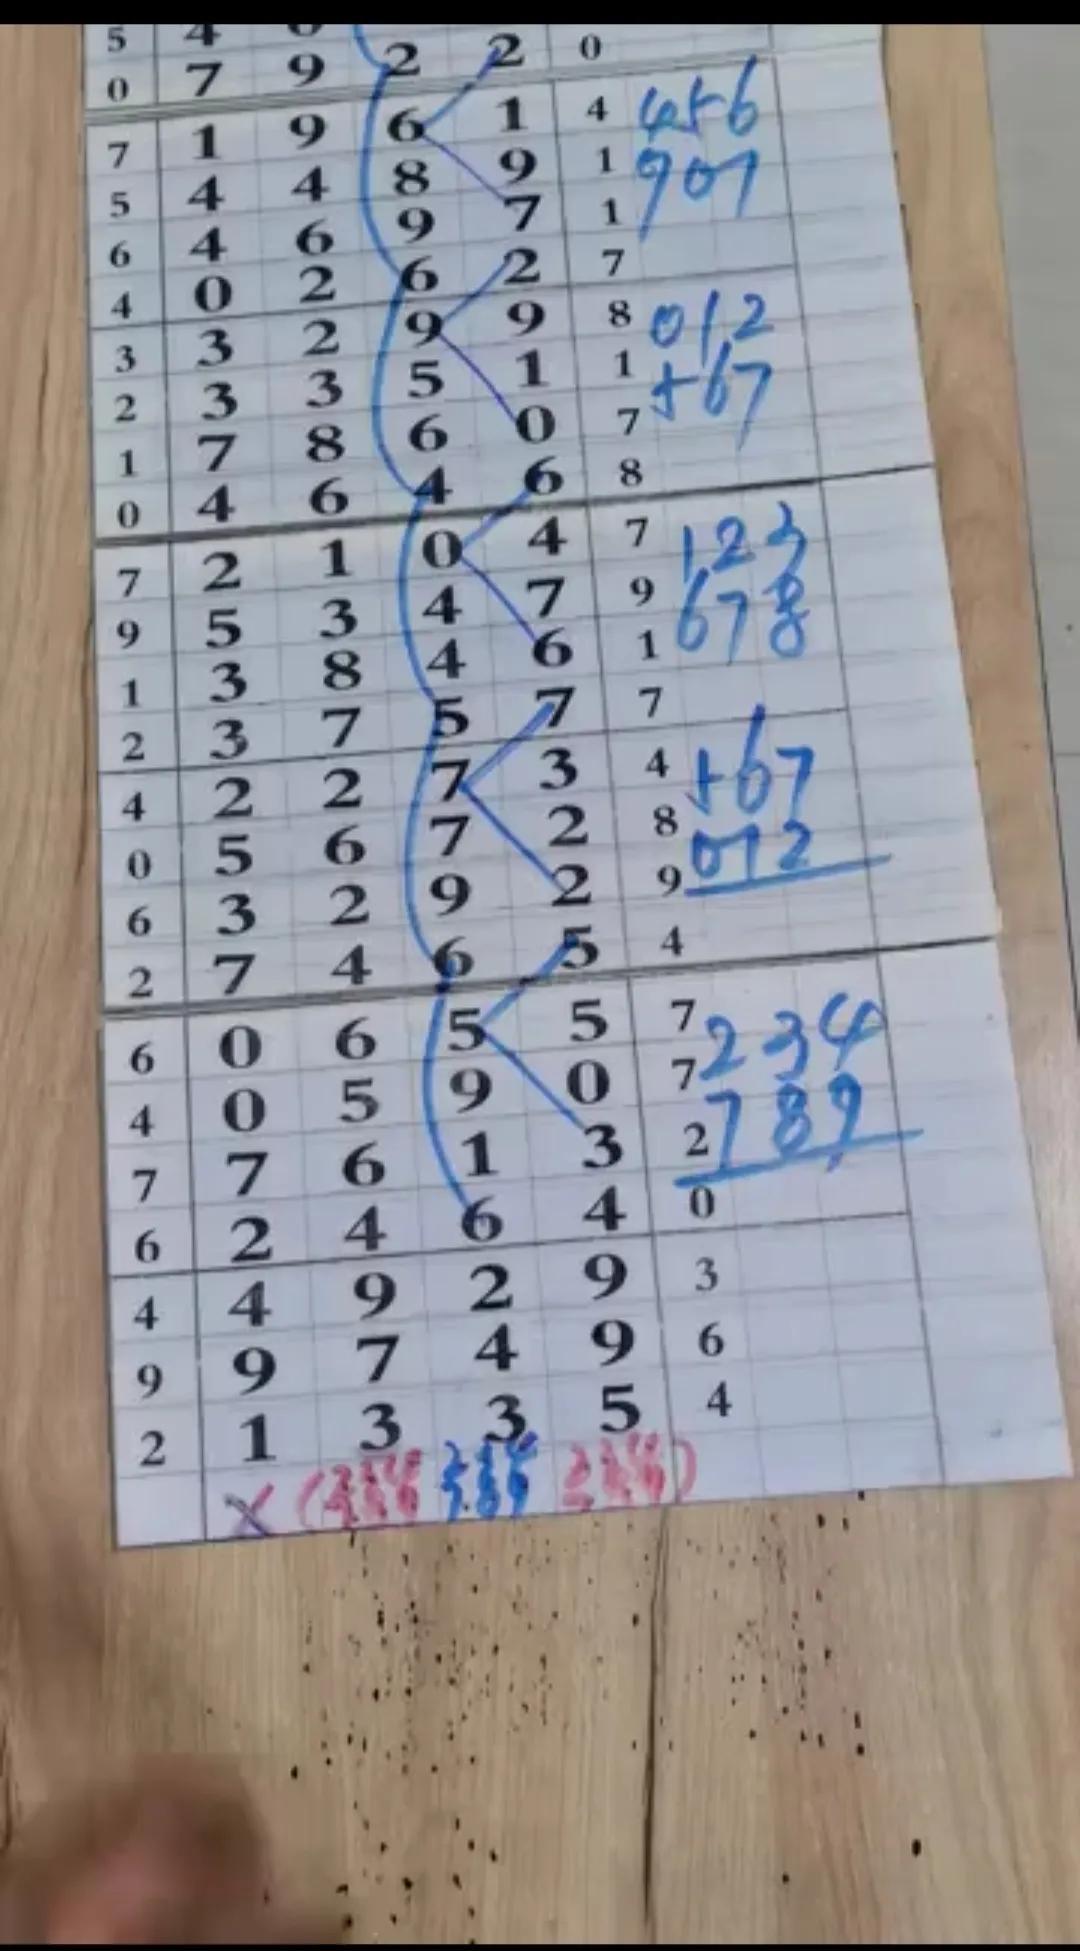 5 4
0 7 9 2 2 0
7 1 9 6 1 4 456
5 4 4 8 9 1 907
6 4 6 9 7 1
4 0 2 6 2 7
3 3 2 9 9 8 012
2 3 3 5 1 1 567
1 7 8 6 0 7
0 4 6 4 6 8
7 2 1 0 4 7 123
9 5 3 4 7 9 678
1 3 8 4 6 1
2 3 7 5 7 7
4 2 2 7 3 4 567
0 5 6 7 2 8 012
6 3 2 9 2 9
2 7 4 6 5 4
6 0 6 5 5 7 234
4 0 5 9 0 7 789
7 7 6 1 3 2
6 2 4 6 4 0
4 4 9 2 9 3
9 9 7 4 9 6
2 1 3 3 5 4
X ( 234 789 )